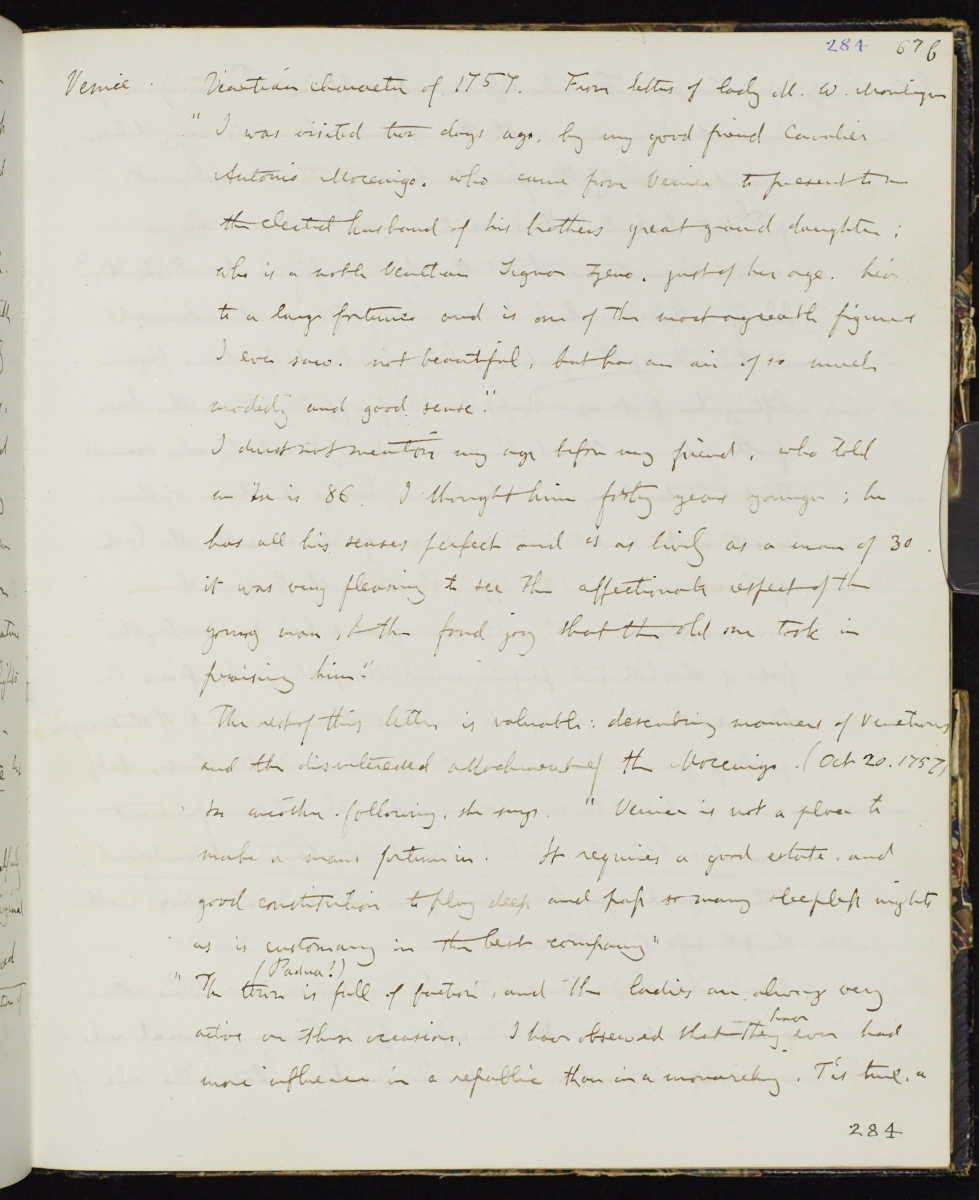 284 676
Venice. Venetian character of 1757. From letters of Lady M. W. Montague
"I was visited two days ago, by my good friend Cavalier
Antonio Mocenigo. who came from Venice to present to me
the elected husband of his brothers great grand daughter;
who is a noble Venetian Signor Zeno. just of her age. heir
to a large fortune and is one of the most agreeable figures
I ever saw. not beautiful, but has an air of so much
modesty and good sense."
I durst not mention my age before my friend, who told
me he is 86. I thought him forty years younger; he
has all his senses perfect and is as lively as a man of 30.
it was very pleasing to see the affectionate respect of the
young man, & the fond joy that the old one took in
praising him."
The rest of this letter is valuable: describing manners of Venetians
and the disinterested attachment of the Mocenigo. (Oct 20. 1757)
In another. following. she says. "Venice is not a place to
make a mans fortune in. It requires a good estate, and
good constitution to play deep and pass so many sleepless nights
as is customary in the best company"
(Padua?)
"The town is full of faction, and the ladies are always very
active on those occasions. I have observed that they have ever had
more influence in a republic than in a monarchy. T'is true, a
284